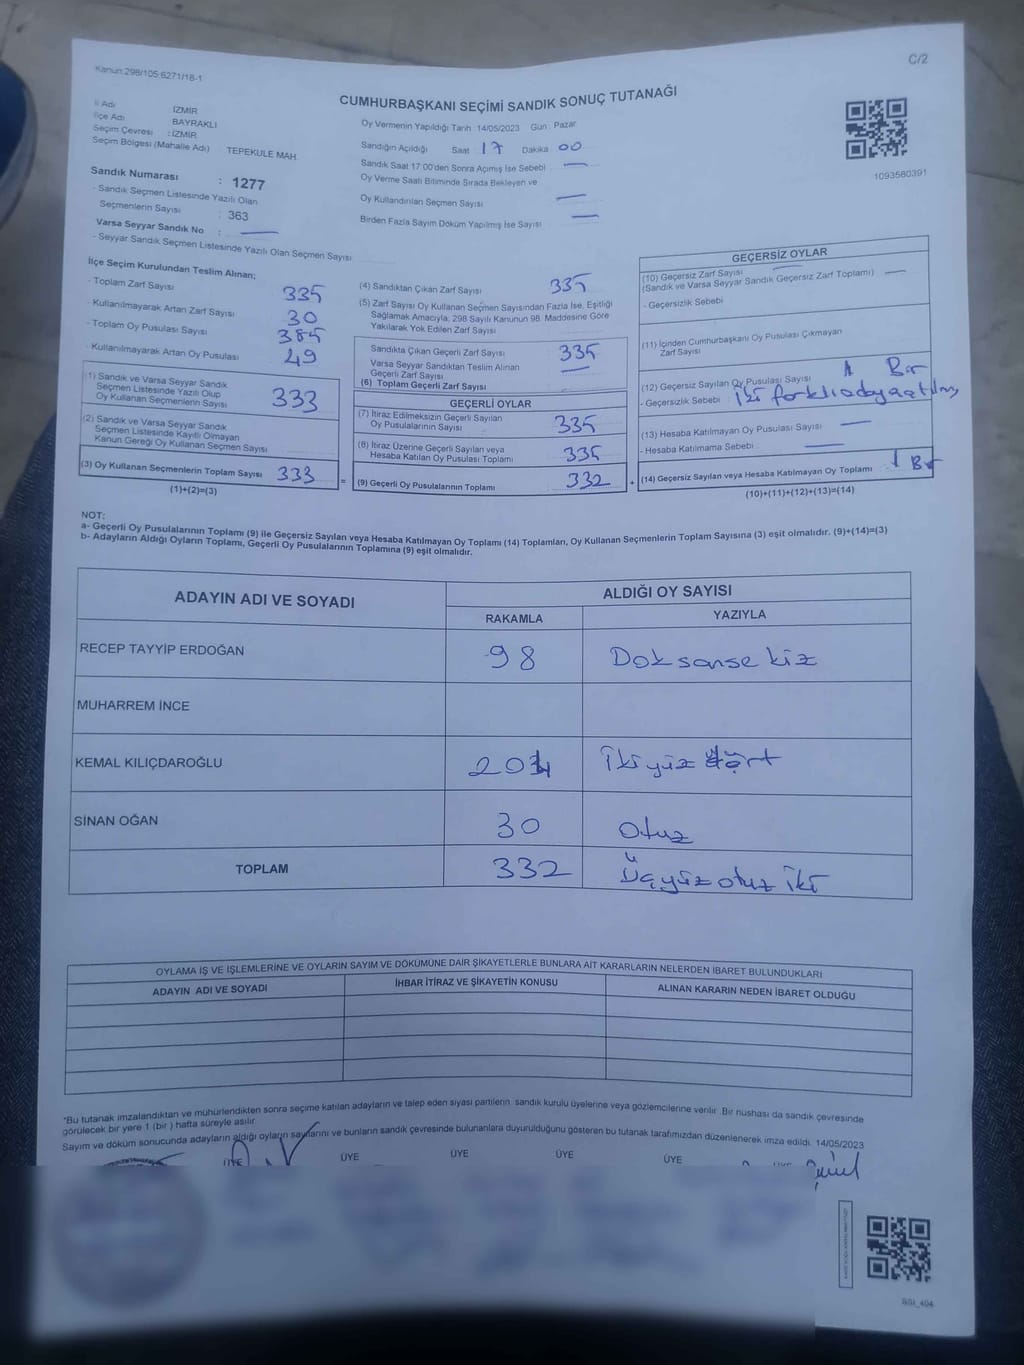 Kanun:298/105;6271/18-1
C/2
CUMHURBAŞKANI SEÇİMİ SANDIK SONUÇ TUTANAĞI
İl Adı İZMİR
İlçe Adı BAYRAKLI
Seçim Çevresi : İZMİR
Seçim Bölgesi (Mahalle Adı) TEPEKULE MAH.
Sandık Numarası : 1277
- Sandık Seçmen Listesinde Yazılı Olan
Seçmenlerin Sayısı : 363
Varsa Seyyar Sandık No :
- Seyyar Sandık Seçmen Listesinde Yazılı Olan Seçmen Sayısı
Oy Vermenin Yapıldığı Tarih 14/05/2023 Gün : Pazar
Sandığın Açıldığı Saat 17 Dakika 00
Sandık Saat 17:00'den Sonra Açımış İse Sebebi
Oy Verme Saati Bitiminde Sırada Bekleyen ve
Oy Kullandırılan Seçmen Sayısı
Birden Fazla Sayım Döküm Yapılmış İse Sayısı
1093560391
İlçe Seçim Kurulundan Teslim Alınan;
- Toplam Zarf Sayısı 335
- Kullanılmayarak Artan Zarf Sayısı 30
- Toplam Oy Pusulası Sayısı 385
- Kullanılmayarak Artan Oy Pusulası 49
(1) Sandık ve Varsa Seyyar Sandık
Seçmen Listesinde Yazılı Olup
Oy Kullanan Seçmenlerin Sayısı 333
(2) Sandık ve Varsa Seyyar Sandık
Seçmen Listesinde Kayıtlı Olmayan
Kanun Gereği Oy Kullanan Seçmen Sayısı
(3) Oy Kullanan Seçmenlerin Toplam Sayısı 333
(1)+(2)=(3)
=
(4) Sandıktan Çıkan Zarf Sayısı 335
(5) Zarf Sayısı Oy Kullanan Seçmen Sayısından Fazla İse, Eşitliği
Sağlamak Amacıyla, 298 Sayılı Kanunun 98. Maddesine Göre
Yakılarak Yok Edilen Zarf Sayısı
Sandıkta Çıkan Geçerli Zarf Sayısı 335
Varsa Seyyar Sandıktan Teslim Alınan
Geçerli Zarf Sayısı
(6) Toplam Geçerli Zarf Sayısı
GEÇERLİ OYLAR
(7) İtiraz Edilmeksizin Geçerli Sayılan
Oy Pusulalarının Sayısı 335
(8) İtiraz Üzerine Geçerli Sayılan veya
Hesaba Katılan Oy Pusulası Toplamı 335
(9) Geçerli Oy Pusulalarının Toplamı 332
+
GEÇERSİZ OYLAR
(10) Geçersiz Zarf Sayısı
(Sandık ve Varsa Seyyar Sandık Geçersiz Zarf Toplamı)
- Geçersizlik Sebebi
(11) İçinden Cumhurbaşkanı Oy Pusulası Çıkmayan
Zarf Sayısı
(12) Geçersiz Sayılan Oy Pusulası Sayısı 1 Bir
- Geçersizlik Sebebi iki farklı adaya atılmış
(13) Hesaba Katılmayan Oy Pusulası Sayısı
- Hesaba Katılmama Sebebi
(14) Geçersiz Sayılan veya Hesaba Katılmayan Oy Toplamı 1 Bir
(10)+(11)+(12)+(13)=(14)
NOT:
a- Geçerli Oy Pusulalarının Toplamı (9) ile Geçersiz Sayılan veya Hesaba Katılmayan Oy Toplamı (14) Toplamları, Oy Kullanan Seçmenlerin Toplam Sayısına (3) eşit olmalıdır. (9)+(14)=(3)
b- Adayların Aldığı Oyların Toplamı, Geçerli Oy Pusulalarının Toplamına (9) eşit olmalıdır.
ADAYIN ADI VE SOYADI
ALDIĞI OY SAYISI
RAKAMLA YAZIYLA
RECEP TAYYİP ERDOĞAN 98 Doksansekiz
MUHARREM İNCE
KEMAL KILIÇDAROĞLU 204 İkiyüz dört
SİNAN OĞAN 30 Otuz
TOPLAM 332 Üçyüz otuz iki
OYLAMA İŞ VE İŞLEMLERİNE VE OYLARIN SAYIM VE DÖKÜMÜNE DAİR ŞİKAYETLERLE BUNLARA AİT KARARLARIN NELERDEN İBARET BULUNDUKLARI
ADAYIN ADI VE SOYADI İHBAR İTİRAZ VE ŞİKAYETİN KONUSU ALINAN KARARIN NEDEN İBARET OLDUĞU
*Bu tutanak imzalandıktan ve mühürlendikten sonra seçime katılan adayların ve talep eden siyasi partilerin sandık kurulu üyelerine veya gözlemcilerine verilir. Bir nüshası da sandık çevresinde
görülecek bir yere 1 (bir) hafta süreyle asılır.
Sayım ve döküm sonucunda adayların aldığı oyların sayılarını ve bunların sandık çevresinde bulunanlara duyurulduğunu gösteren bu tutanak tarafımızdan düzenlenerek imza edildi. 14/05/2023
ÜYE ÜYE ÜYE ÜYE ÜYE